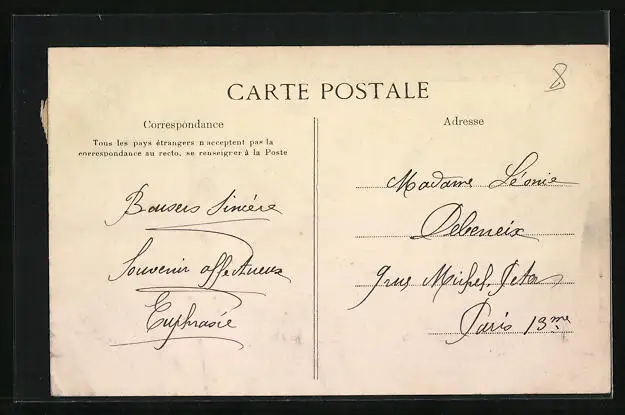 8
CARTE POSTALE
Correspondance
Adresse
Tous les pays étrangers n'acceptent pas la
correspondance au recto, se renseigner à la Poste
Baisers Sincère
Souvenir affectueux
Euphrasie
Madame Léonie
Debeneix
9 rue Michel
Paris 13me